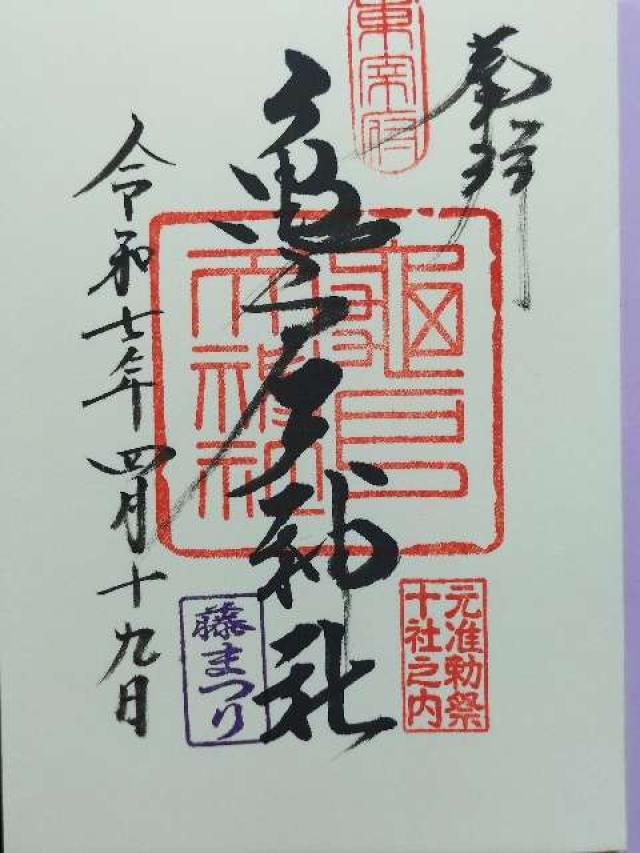 奉拝
東宰府
亀戸神社
元准勅祭
十社之内
藤まつり
令和七年四月十九日